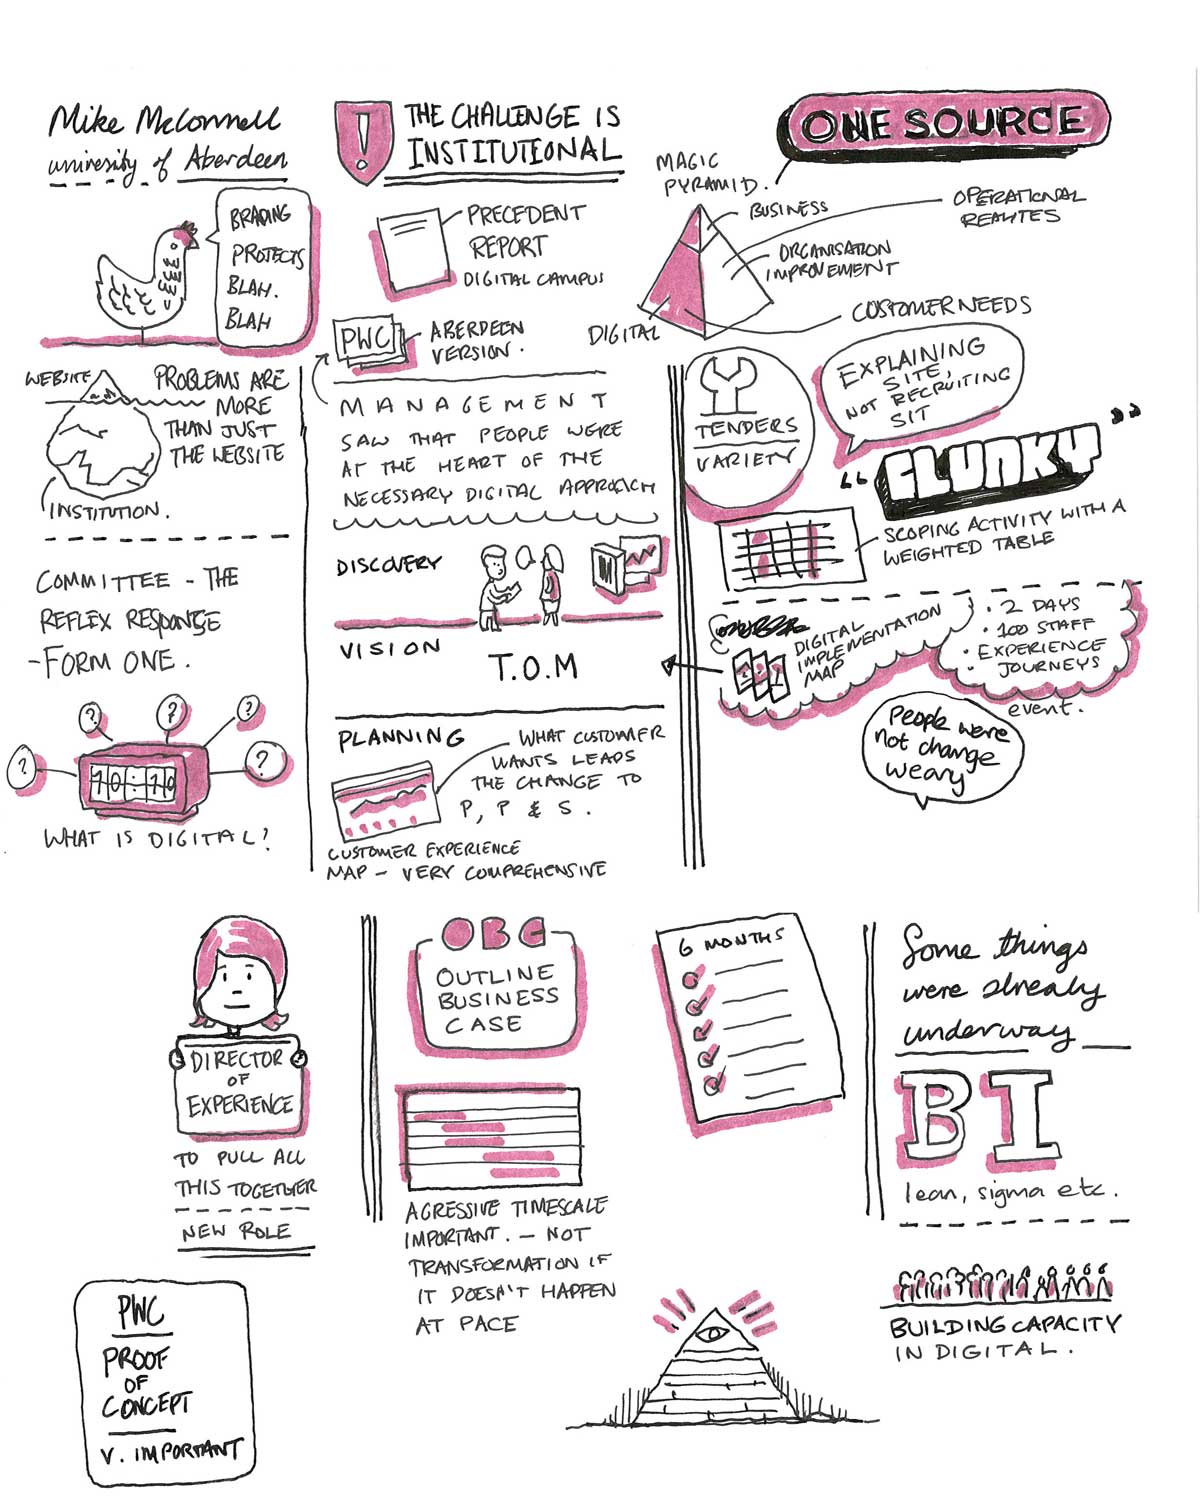 Mike McConnell
university of Aberdeen
BRADING
PROTECTS
BLAH.
BLAH
WEBSITE
PROBLEMS ARE
MORE
THAN JUST
THE WEBSITE
INSTITUTION.
COMMITTEE - THE
REFLEX RESPONSE
- FORM ONE.
?
?
?
?
?
10:10
WHAT IS DIGITAL?
!
THE CHALLENGE IS
INSTITUTIONAL
PRECEDENT
REPORT
DIGITAL CAMPUS
PWC
ABERDEEN
VERSION.
MANAGEMENT
SAW THAT PEOPLE WERE
AT THE HEART OF THE
NECESSARY DIGITAL APPROACH
DISCOVERY
VISION
T.O.M
PLANNING
WHAT CUSTOMER
WANTS LEADS
THE CHANGE TO
P, P & S.
CUSTOMER EXPERIENCE
MAP - VERY COMPREHENSIVE
ONE SOURCE
MAGIC
PYRAMID.
BUSINESS
OPERATIONAL
REALITES
ORGANISATION
IMPROVEMENT
DIGITAL
CUSTOMER NEEDS
TENDERS
VARIETY
EXPLAINING
SITE,
NOT RECRUITING
SIT
"CLUNKY"
SCOPING ACTIVITY WITH A
WEIGHTED TABLE
DIGITAL
IMPLEMENTATION
MAP
• 2 DAYS
• 100 STAFF
• EXPERIENCE
JOURNEYS
event.
People were
not change
weary
DIRECTOR
OF
EXPERIENCE
TO PULL ALL
THIS TOGETHER
NEW ROLE
OBC
OUTLINE
BUSINESS
CASE
AGRESSIVE TIMESCALE
IMPORTANT. - NOT
TRANSFORMATION IF
IT DOESN'T HAPPEN
AT PACE
6 MONTHS
Some things
were already
underway
BI
lean, sigma etc.
BUILDING CAPACITY
IN DIGITAL.
PWC
PROOF
OF
CONCEPT
V. IMPORTANT